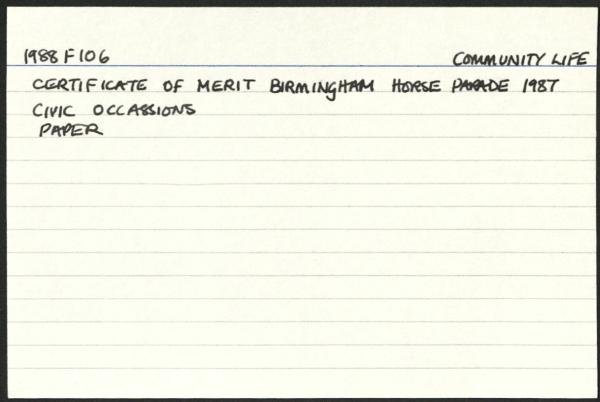 1988 F 106 COMMUNITY LIFE
CERTIFICATE OF MERIT BIRMINGHAM HORSE PARADE 1987
CIVIC OCCASSIONS
PAPER